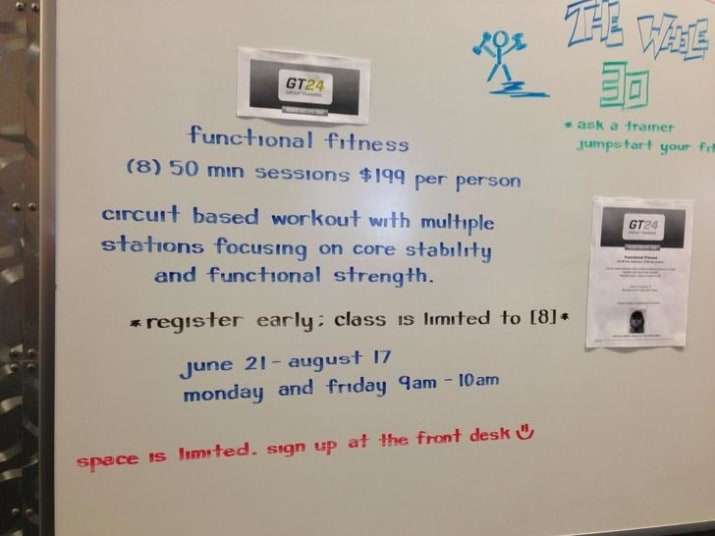 THE WHOLE
30
* ask a trainer
jumpstart your
GT24
functional fitness
(8) 50 min sessions $199 per person
circuit based workout with multiple
stations focusing on core stability
and functional strength.
*register early; class is limited to [8]*
june 21 - august 17
monday and friday 9am - 10am
space is limited. sign up at the front desk
GT24
Functional Fitness